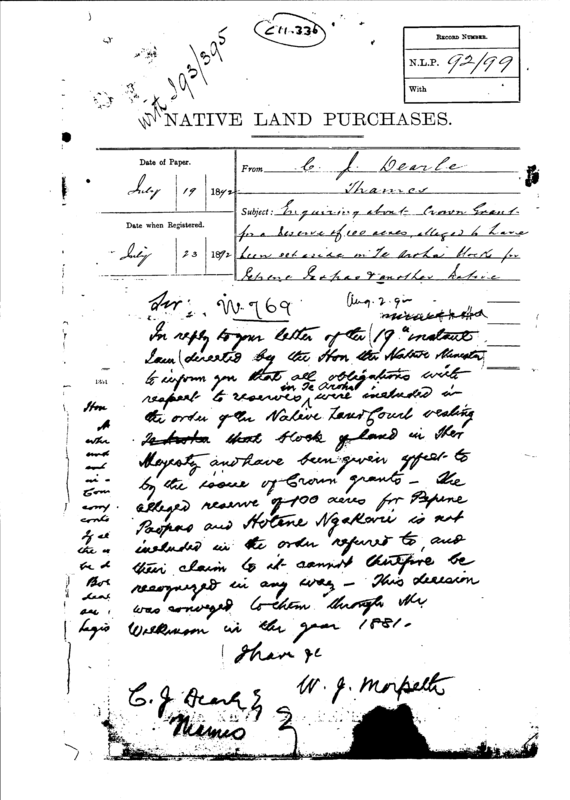 C11.336
with J93/395
RECORD NUMBER.
N.L.P. 92/99
With
NATIVE LAND PURCHASES.
Date of Paper.
July 19 1892
Date when Registered.
July 23 1892
From C. J. Dearle
Thames
Subject: Enquiring about Crown Grant
for a Reserve of 100 acres, alleged to have
been set aside in Te Aroha Block for
& another Native
Sir, N.769 Aug. 2. 92
In reply to your letter of the 19th instant
I am directed by the Hon the Native Minister
to inform you that all obligations with
respect to reserves in Te Aroha were included in
the order of the Native Land Court vesting
Te Aroha that block of land in Her
Majesty and have been given effect to
by the issue of Crown grants – The
alleged reserve of 100 acres for Pepene
Paopao and Hotene Ngakari is not
included in the order referred to, and
their claim to it cannot therefore be
recognized in any way – This decision
was conveyed to them through Mr
Wilkinson in the year 1881.
I have &c
W. J. Morpeth
C. J. Dearle Esq
Thames